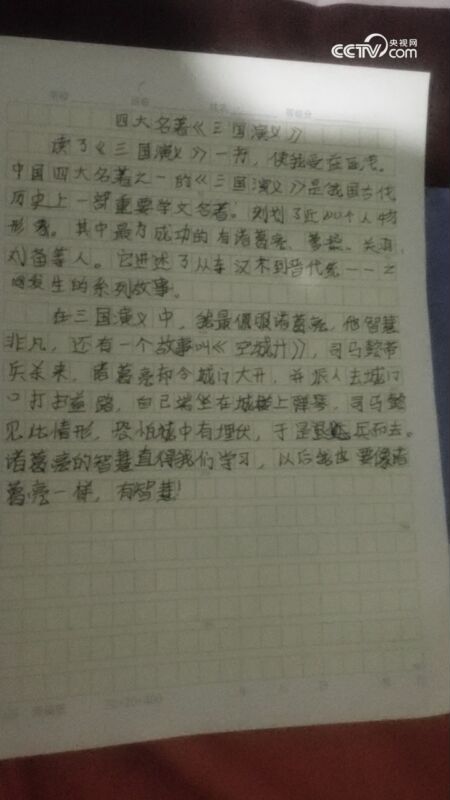 CCTV 央视网
com
四大名著《三国演义》
读了《三国演义》一书，使我受益匪浅。
中国四大名著之一的《三国演义》是我国古代
历史上一部重要学文名著。刻划了近400个人物
形象。其中最为成功的有诸葛亮、曹操、关羽、
刘备等人。它讲述了从东汉末到晋代统一之
间发生的系列故事。
在三国演义中，我最佩服诸葛亮，他智慧
非凡，还有一个故事叫《空城计》，司马懿带
兵杀来，诸葛亮却令城门大开，并派人去城门
口打扫道路，自己端坐在城楼上弹琴，司马懿
见此情形，恐怕城中有埋伏，于是退兵而去。
诸葛亮的智慧直得我们学习，以后我也要像诸
葛亮一样，有智慧！
20×20=400